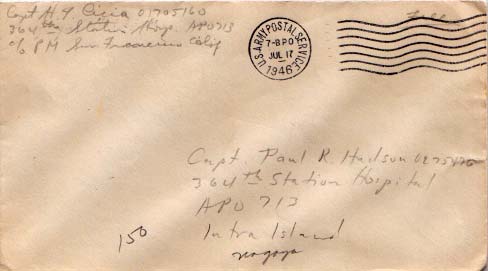 Capt H. F. Cicia 01705160
364th Station Hosp. APO 713
c/o P M San Francisco Calif
U.S. ARMY POSTAL SERVICE
7-BPO
JUL 17
1946
Free
Capt. Paul R. Hudson
364th Station Hospital
APO 713
Intra Island
Nagoya
150